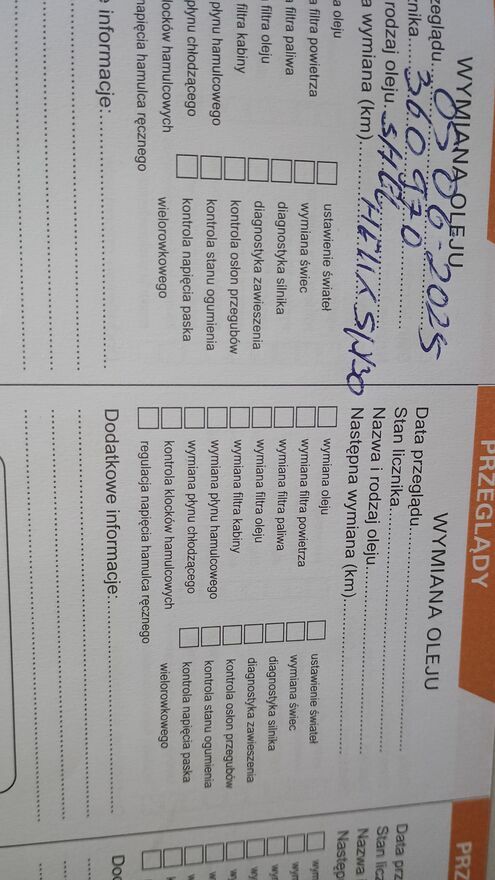 WYMIANA OLEJU
zeglądu.. 05 06-2025
znika... 360970
rodzaj oleju. SHEL HELIX 5W30
a wymiana (km)........
a oleju
ustawienie świateł
a filtra powietrza
wymiana świec
filtra paliwa
diagnostyka silnika
filtra oleju
diagnostyka zawieszenia
filtra kabiny
kontrola osłon przegubów
płynu hamulcowego
kontrola stanu ogumienia
płynu chłodzącego
kontrola napięcia paska
wielorowkowego
klocków hamulcowych
napięcia hamulca ręcznego
e informacje:
PRZEGLĄDY
WYMIANA OLEJU
Data przeglądu
Stan licznika
Nazwa i rodzaj oleju
Następna wymiana (km)
wymiana oleju
ustawienie świateł
wymiana filtra powietrza
wymiana świec
wymiana filtra paliwa
diagnostyka silnika
wymiana filtra oleju
diagnostyka zawieszenia
wymiana filtra kabiny
kontrola osłon przegubów
wymiana płynu hamulcowego
kontrola stanu ogumienia
wymiana płynu chłodzącego
kontrola napięcia paska
wielorowkowego
kontrola klocków hamulcowych
regulacja napięcia hamulca ręcznego
Dodatkowe informacje:
PRZ
Data prz
Stan licz
Nazwa i
Następ
wym
wym
wy
wy
w
Doc